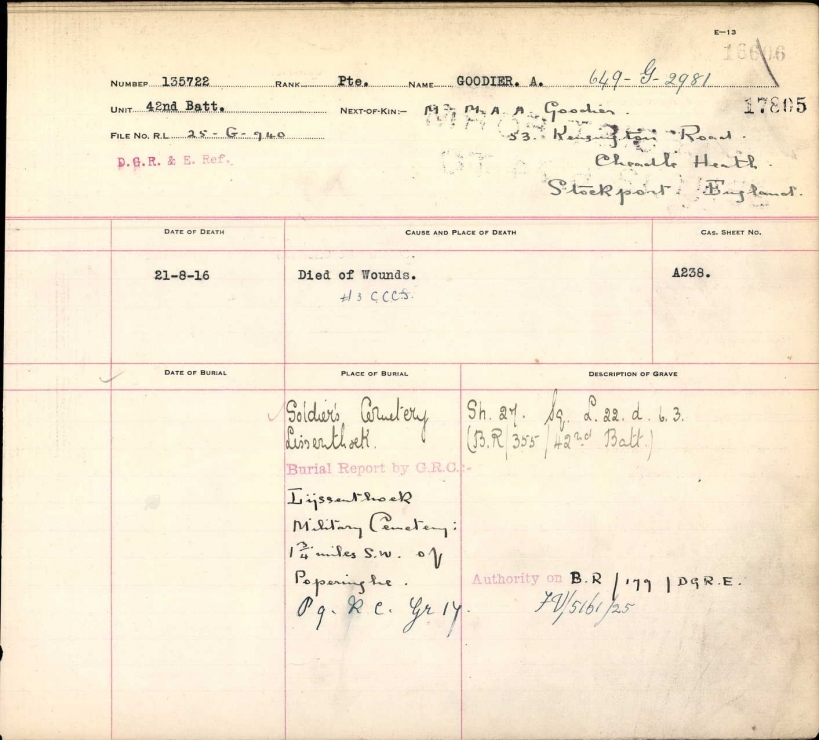 E—13
16606
NUMBER 135722 RANK Pte. NAME GOODIER. A. 649-G-2981
17805
UNIT 42nd Batt. NEXT-OF-KIN:— M. A. A. Goodier.
FILE NO. R.L. 25-G-940 53. Kensington Road.
D.G.R. & E. Ref. Cheadle Heath.
Stockport. England.
DATE OF DEATH CAUSE AND PLACE OF DEATH CAS. SHEET NO.
21-8-16 Died of Wounds. A238.
#3 CCCS.
DATE OF BURIAL PLACE OF BURIAL DESCRIPTION OF GRAVE
Soldier's Cemetery Sh. 27. Sq. L. 22. d. 6. 3.
Lissenthoek. (B.R/355/42nd Batt.)
Burial Report by G.R.C:-
Lijssenthoek
Military Cemetery:
1¾ miles S.W. of
Poperinghe. Authority on B.R/179/D.G.R.E.
Gr 17. /5161/25